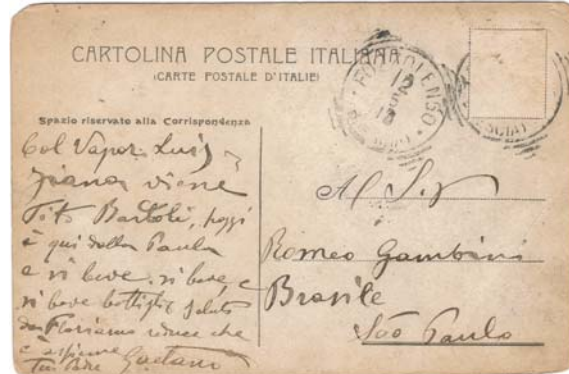 CARTOLINA POSTALE ITALIANA
(CARTE POSTALE D'ITALIE)
Spazio riservato alla Corrispondenza
Col Vapor Luis
jiana viene
Tito Bartoli, poggi
è qui dalla Paula
e si beve, si beve, e
si beve bottiglie saluti
da Floriano che
è assieme
Gaetano
12
5
Al Sig
Romeo Gambini
Brasile
São Paulo